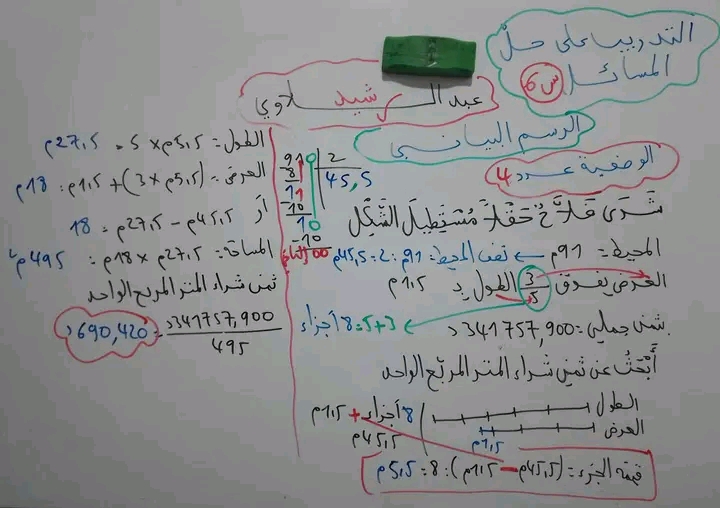 التدريب على حلّ
المسائل س6
عبد الرشيد
الرسم البياني
الوضعية عدد 4
شترى فلاّحٌ حقلاً مستطيل الشّكل
المحيط: 91م ← نصف المحيط: 91م : 2 = 45,5م
العرض يفوق 3/5 الطول بـ 1,5م
بثمن جملي = 341757,900د
5+3 = 8 أجزاء
أبحثُ عن ثمن شراء المتر المربّع الواحد
الطول
العرض
1,5م
8 أجزاء + 1,5م
45,5م
قيمة الجزء = (45,5م - 1,5م) : 8 = 5,5م
910 2
8 45,5
11
10
10
10
00
الطول = 5,5م × 5 = 27,5م
العرض = (5,5م × 3) + 1,5م = 18م
أو 45,5م - 27,5م = 18
المساحة = 27,5م × 18م = 495م²
ثمن شراء المتر المربع الواحد
341757,900د / 495 = 690,420د